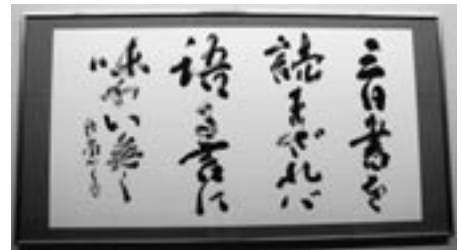 三日書を
読まざれば
語る言に
味わい無し